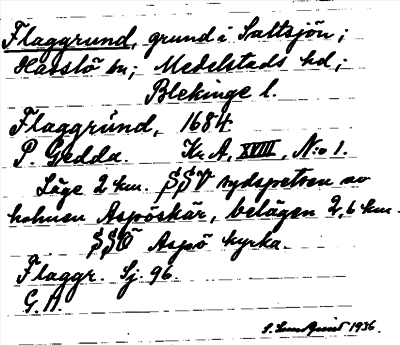 Flaggrund, grund i Saltsjön;
Hasslö sn; Medelstads hd;
Blekinge l.
Flaggrúnd, 1684
P. Gedda. Kr. A, XVIII, N:o 1.
Läge 2 km. SSV sydspetsen av
holmen Aspöskär, belägen 2,6 km.
SSO Aspö kyrka.
Flaggr. Sj. 96.
G. A.
S. Lundquist 1936.